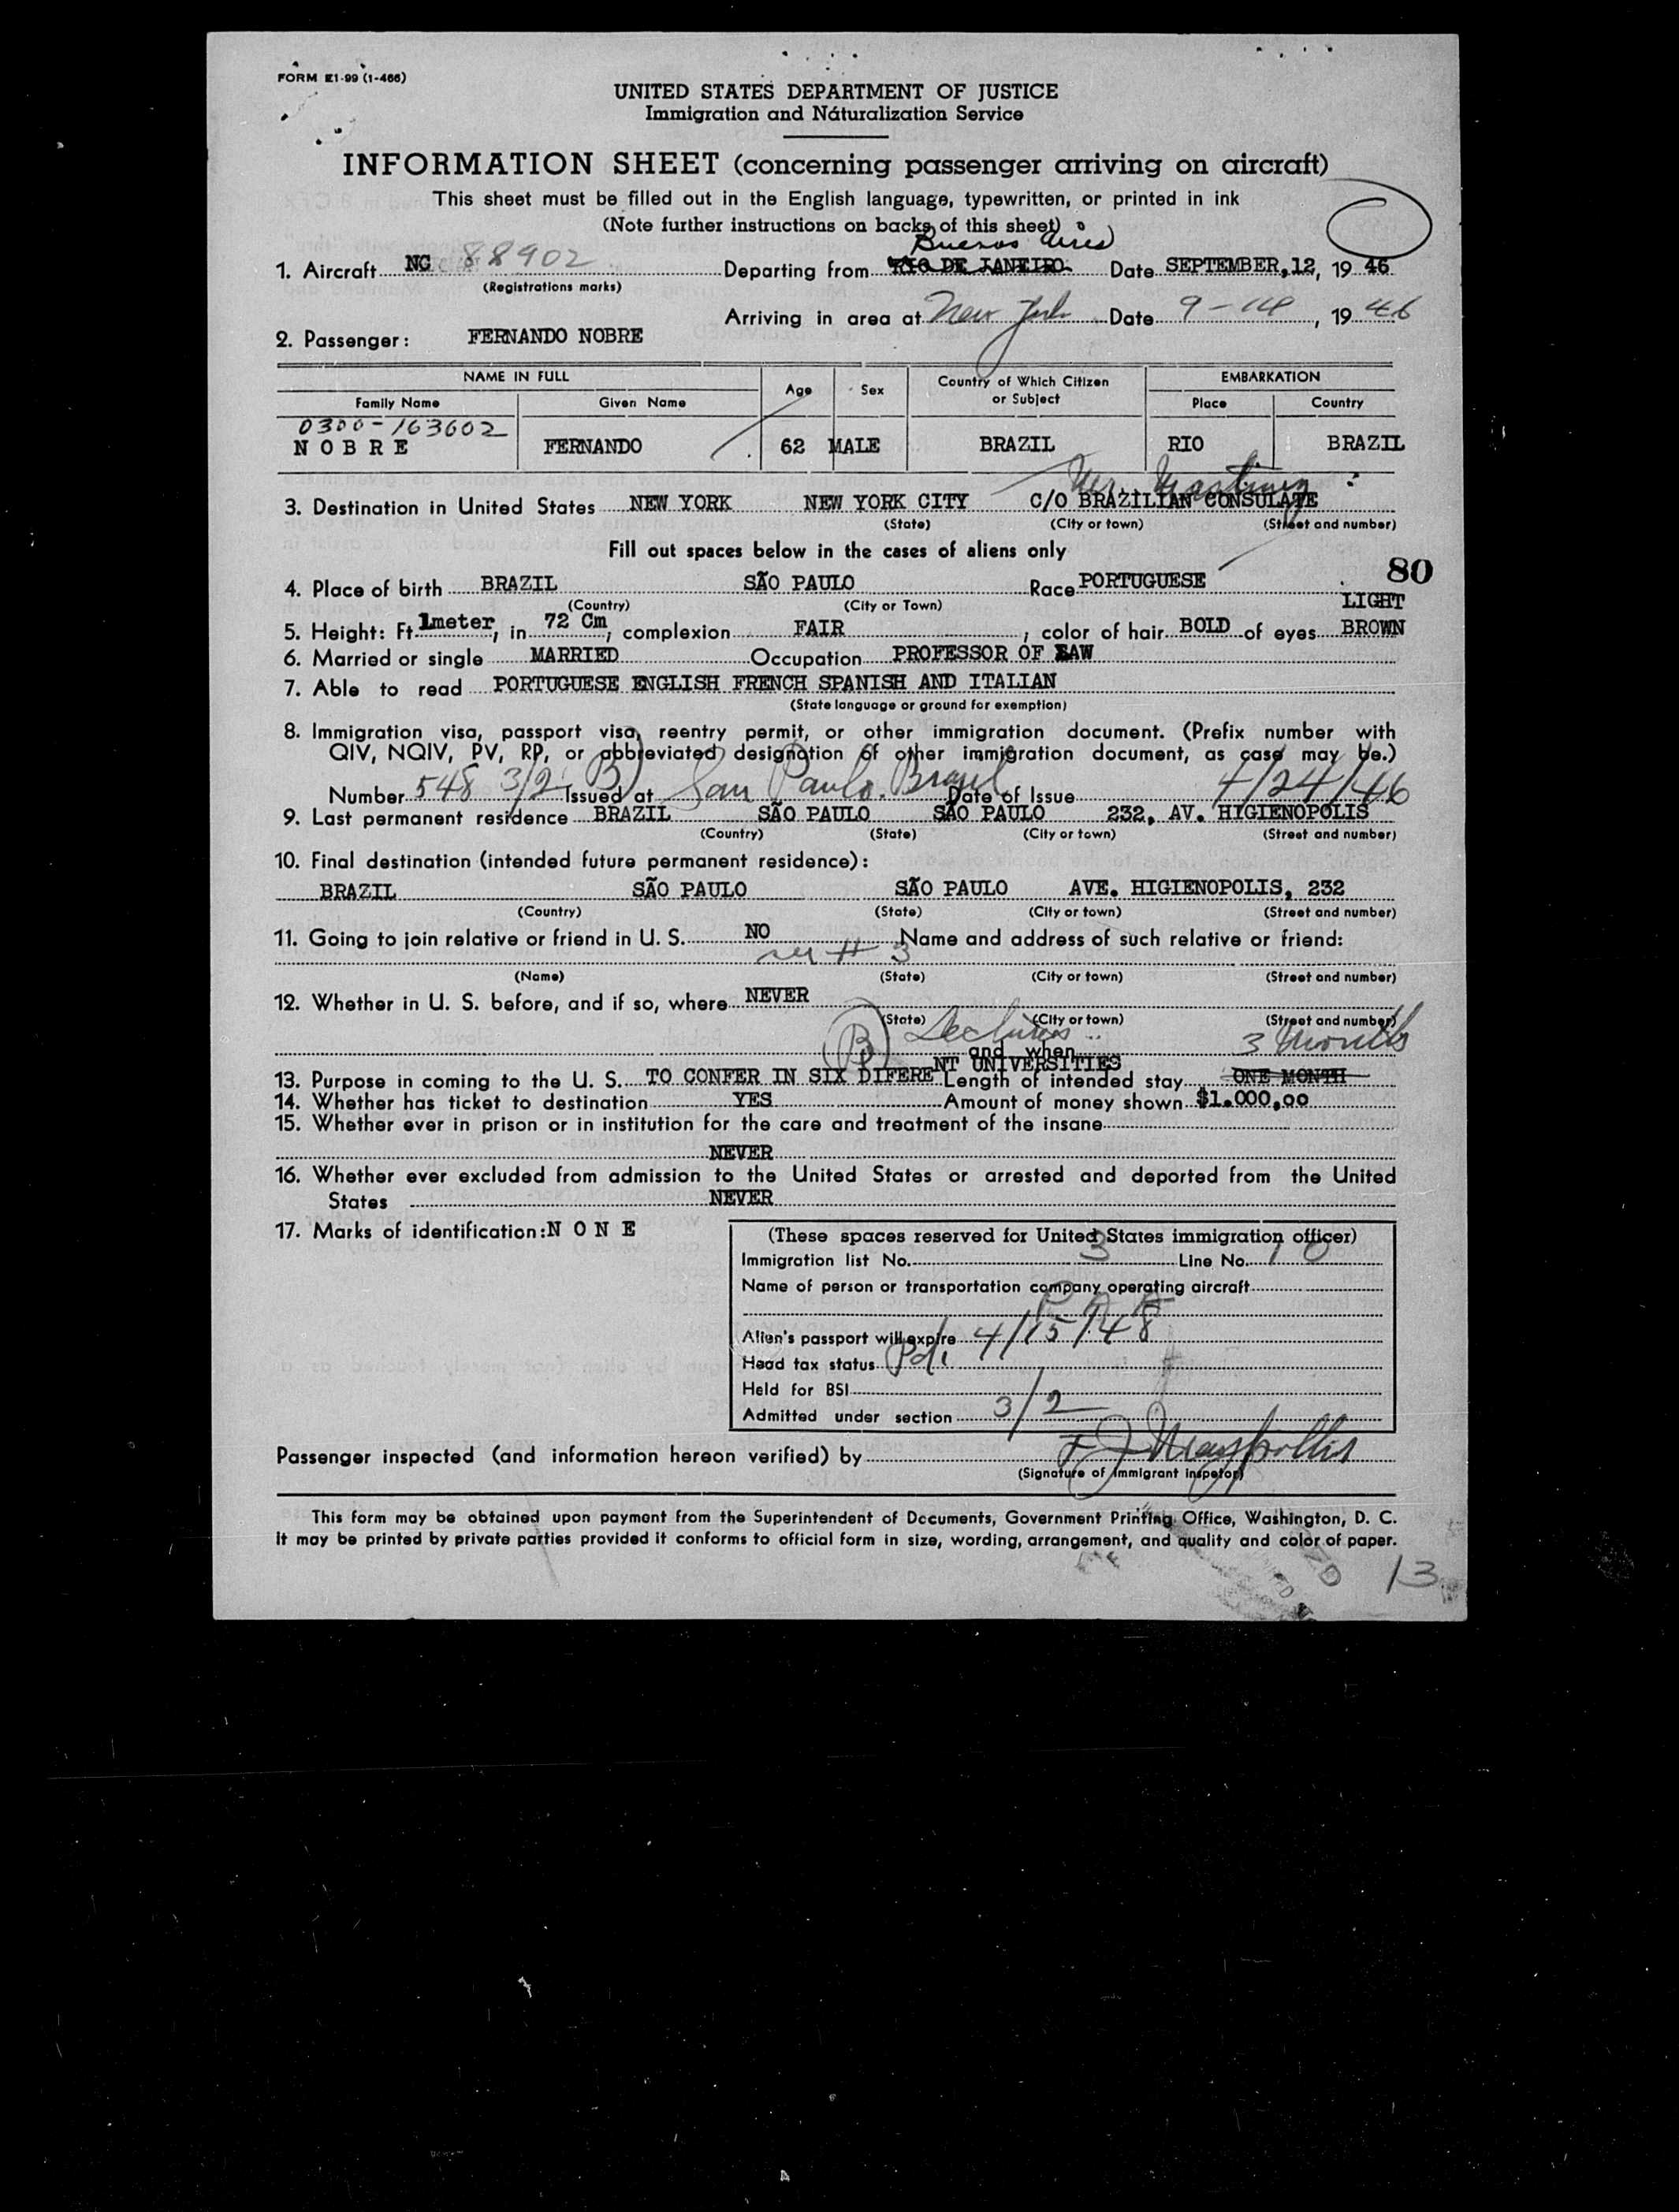 FORM E1-99 (1-466)
UNITED STATES DEPARTMENT OF JUSTICE
Immigration and Naturalization Service
INFORMATION SHEET (concerning passenger arriving on aircraft)
This sheet must be filled out in the English language, typewritten, or printed in ink
(Note further instructions on backs of this sheet)
Buenos Aires
1. Aircraft NC 88902 Departing from RIO DE JANEIRO Date SEPTEMBER,12, 19 46
(Registrations marks)
Arriving in area at New York Date 9-14, 19 46
2. Passenger: FERNANDO NOBRE
NAME IN FULL Age Sex Country of Which Citizen or Subject EMBARKATION
Family Name Given Name Place Country
0300-163602
NOBRE FERNANDO 62 MALE BRAZIL RIO BRAZIL
3. Destination in United States NEW YORK NEW YORK CITY C/O BRAZILIAN CONSULATE
(State) (City or town) (Street and number)
Fill out spaces below in the cases of aliens only
80
4. Place of birth BRAZIL SÃO PAULO Race PORTUGUESE
(Country) (City or Town) LIGHT
5. Height: Ft. 1meter, in 72 Cm, complexion FAIR, color of hair BOLD of eyes BROWN
6. Married or single MARRIED Occupation PROFESSOR OF LAW
7. Able to read PORTUGUESE ENGLISH FRENCH SPANISH AND ITALIAN
(State language or ground for exemption)
8. Immigration visa, passport visa, reentry permit, or other immigration document. (Prefix number with
QIV, NQIV, PV, RP, or abbreviated designation of other immigration document, as case may be.)
Number 548 3/2 B) Issued at San Paulo. Brazil Date of Issue 4/24/46
9. Last permanent residence BRAZIL SÃO PAULO SÃO PAULO 232, AV. HIGIENOPOLIS
(Country) (State) (City or town) (Street and number)
10. Final destination (intended future permanent residence):
BRAZIL SÃO PAULO SÃO PAULO AVE. HIGIENOPOLIS, 232
(Country) (State) (City or town) (Street and number)
11. Going to join relative or friend in U. S. NO Name and address of such relative or friend:
# 3
(Name) (State) (City or town) (Street and number)
12. Whether in U. S. before, and if so, where NEVER
(State) (City or town) (Street and number)
B Lectures 3 Months
and when
13. Purpose in coming to the U. S. TO CONFER IN SIX DIFERENT UNIVERSITIES Length of intended stay ONE MONTH
14. Whether has ticket to destination YES Amount of money shown $1.000,00
15. Whether ever in prison or in institution for the care and treatment of the insane
NEVER
16. Whether ever excluded from admission to the United States or arrested and deported from the United
States NEVER
17. Marks of identification: NONE
(These spaces reserved for United States immigration officer)
Immigration list No. 3 Line No. 10
Name of person or transportation company operating aircraft
P A A
Alien's passport will expire 4/15/48
Head tax status Pd.
Held for BSI
Admitted under section 3/2
Passenger inspected (and information hereon verified) by
(Signature of immigrant inspetor)
This form may be obtained upon payment from the Superintendent of Documents, Government Printing Office, Washington, D. C.
It may be printed by private parties provided it conforms to official form in size, wording, arrangement, and quality and color of paper.
13